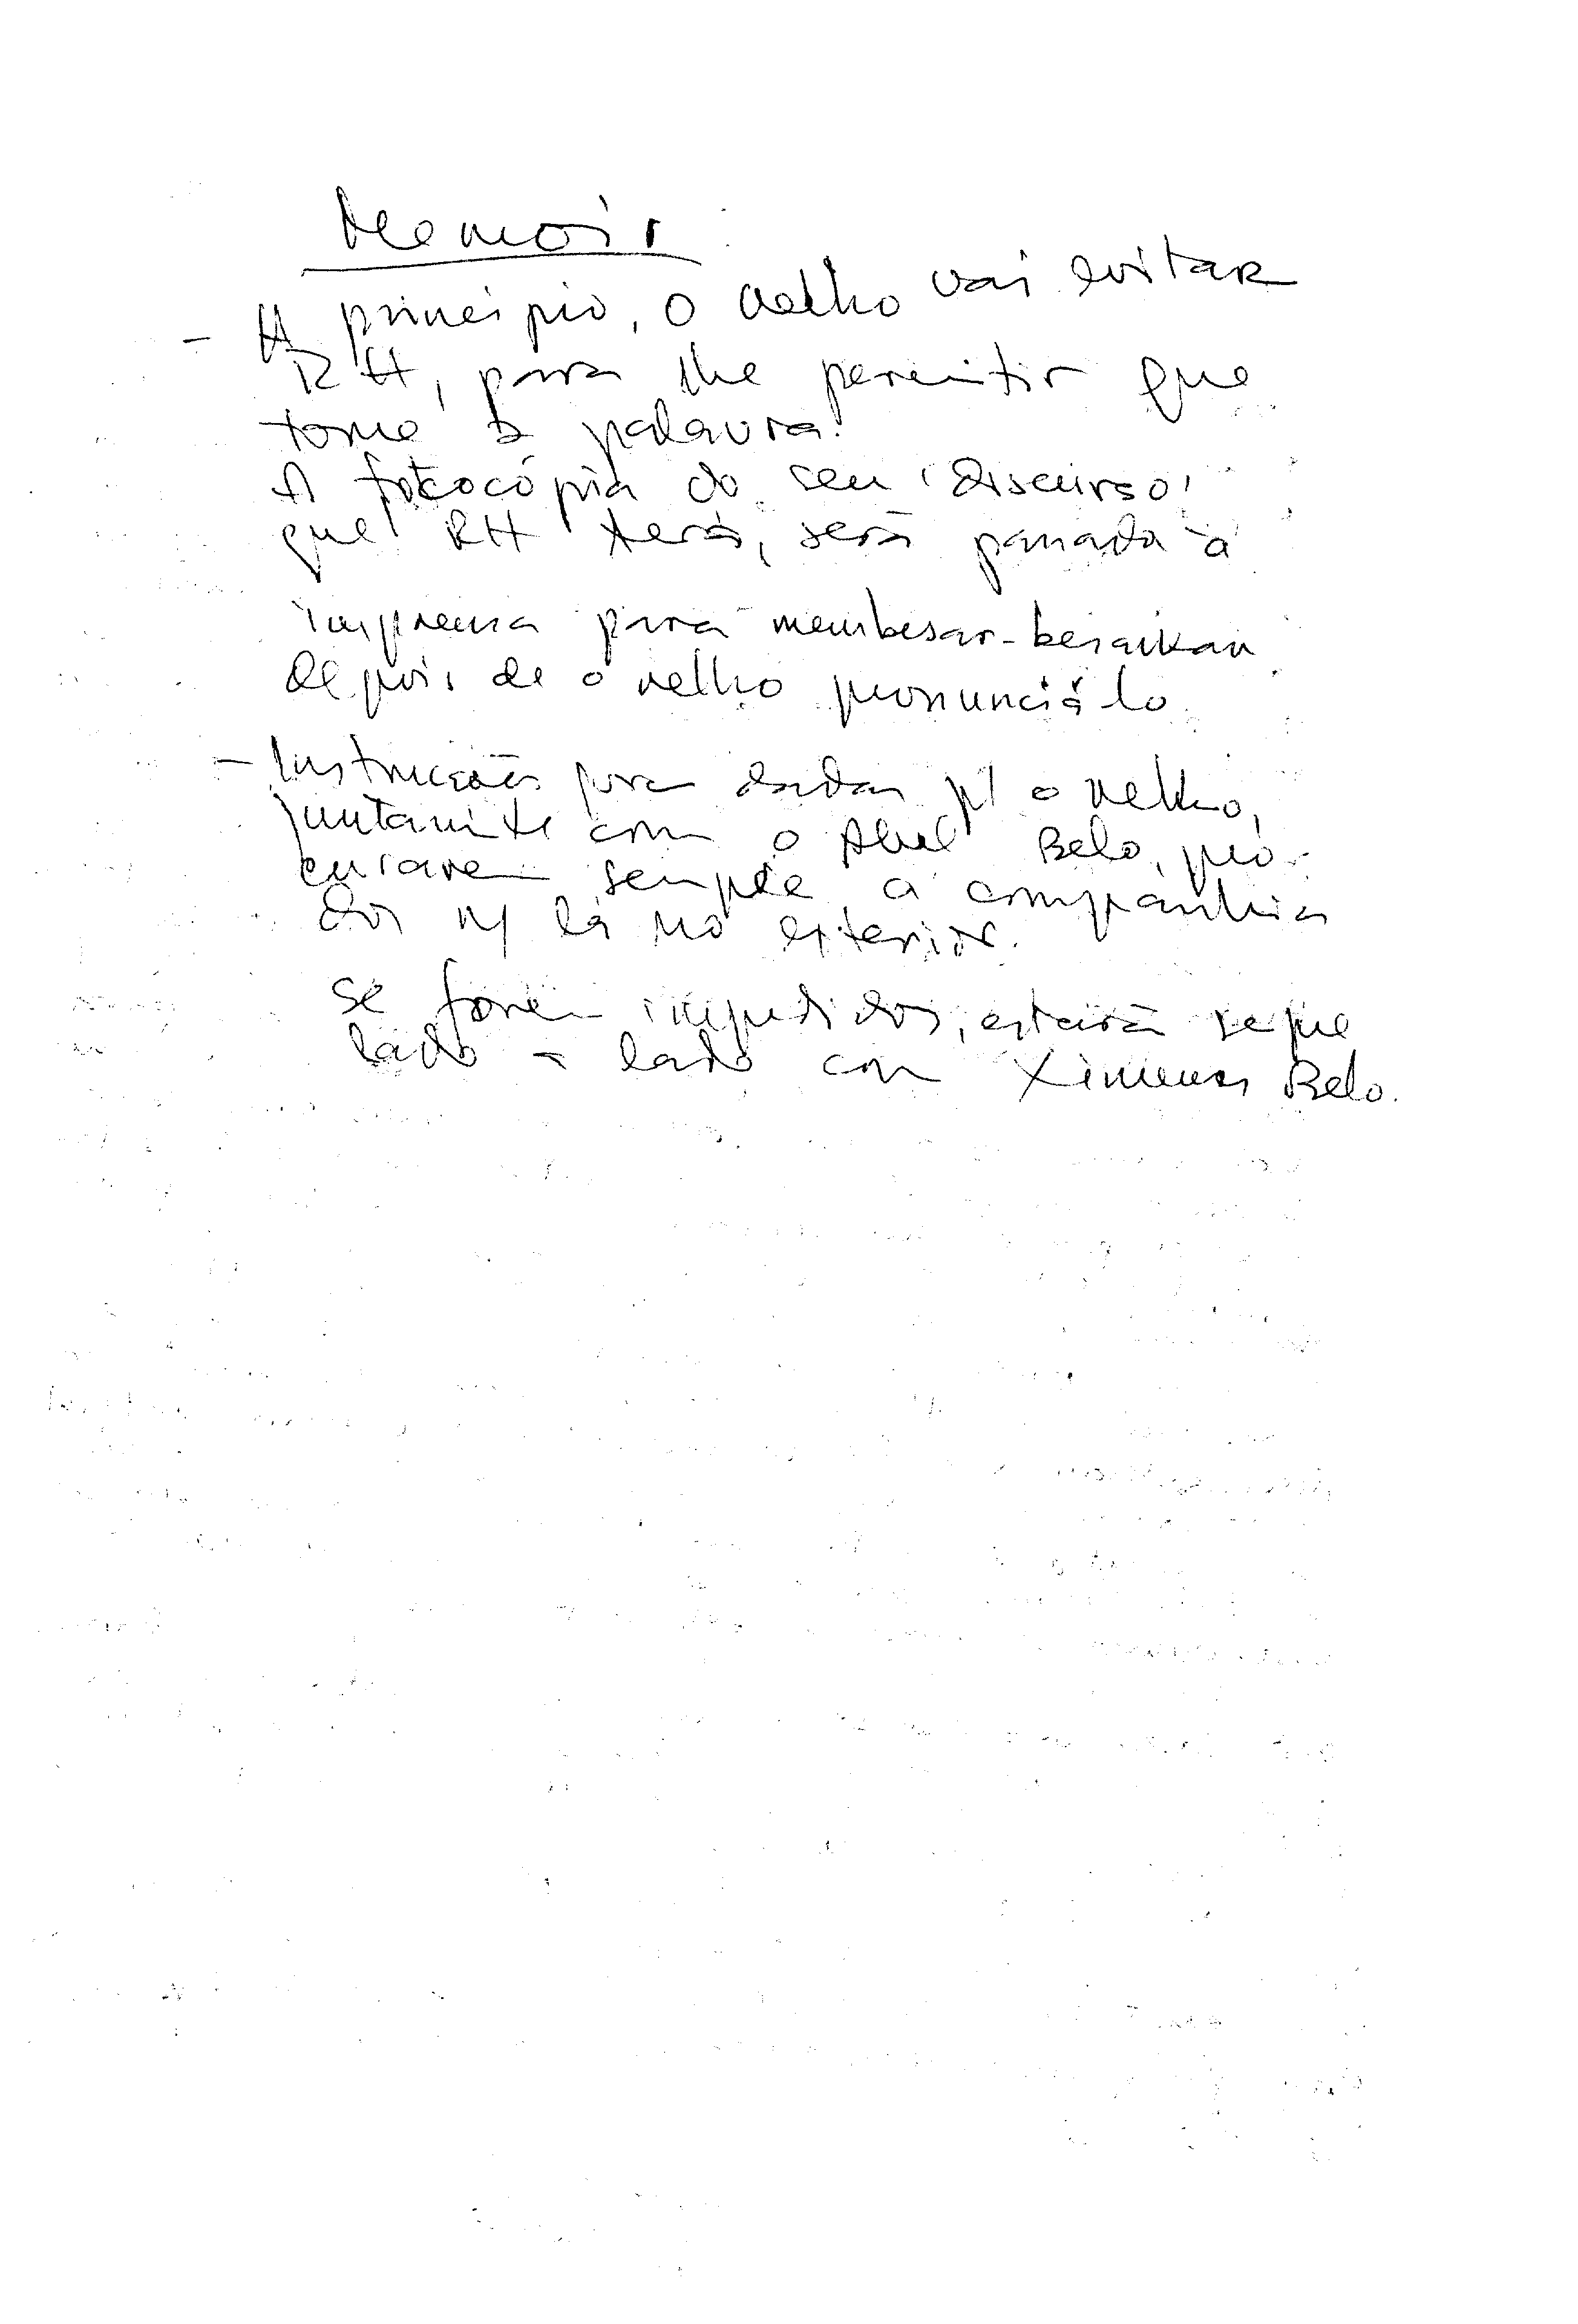 Memoir
- A princípio, o velho vai evitar
RH, para lhe permitir que
tome a palavra.
A fotocópia do seu 'discurso'
que RH terá, será passada à
imprensa para membesar-besarkan
depois de o velho pronunciá-lo.
- Instruções foram dadas p/ o velho,
juntamente com o Abel Belo, pro-
curarem sempre a companhia
dos n/ lá no exterior.
Se forem impedidos, estará sempre
lado a lado com Ximenes Belo.